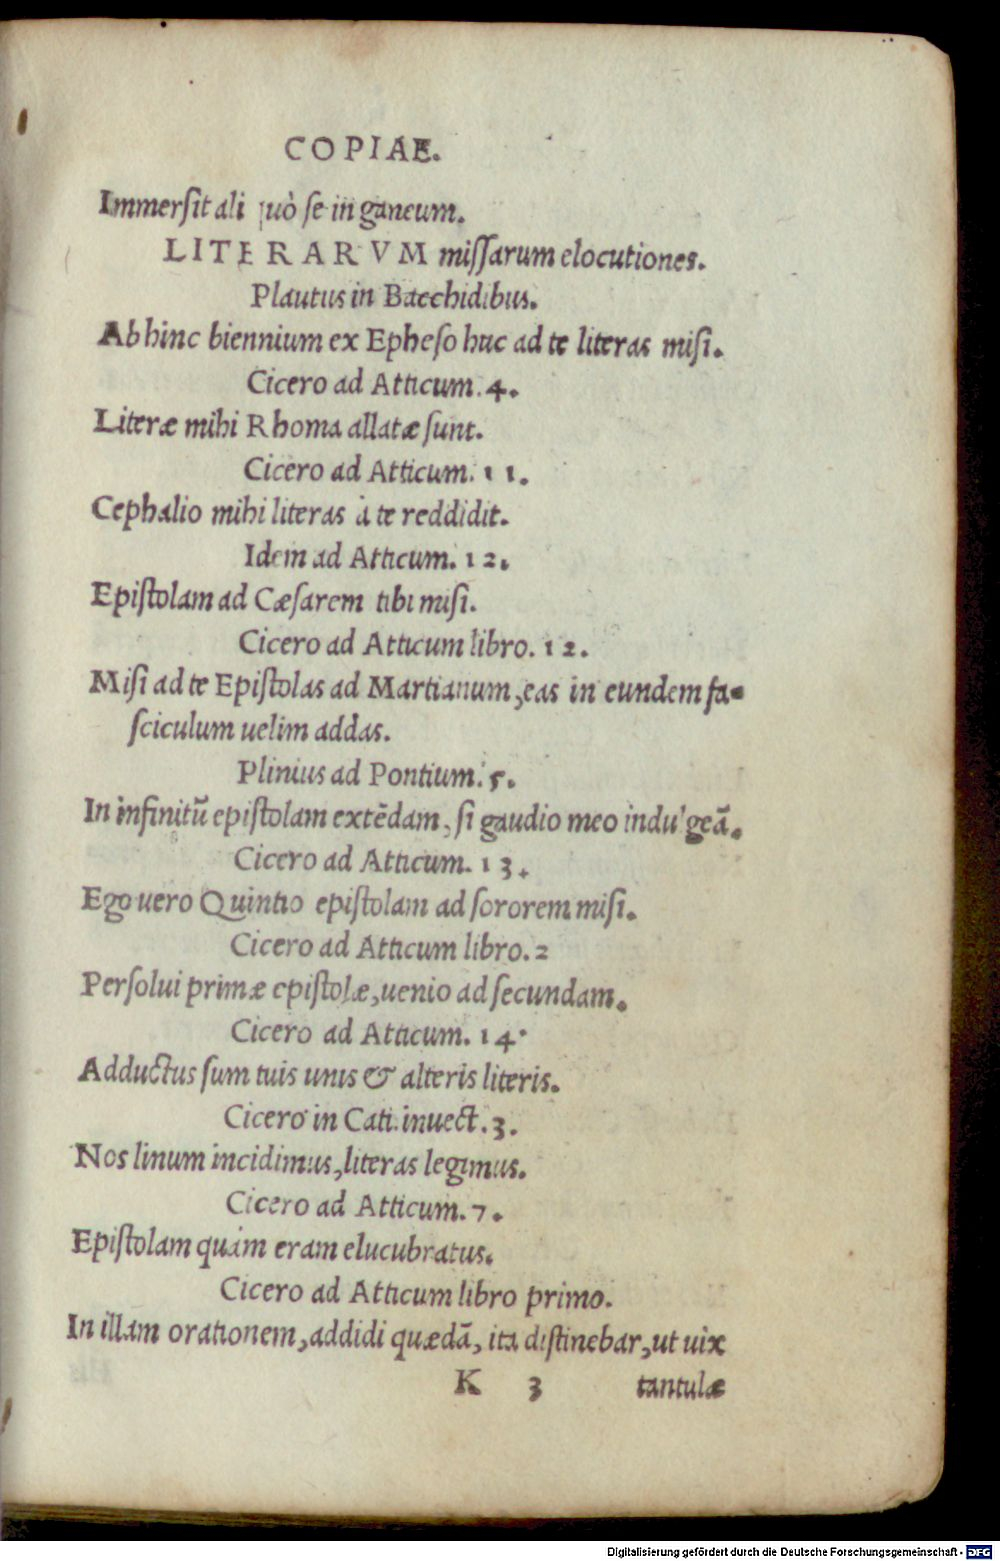 COPIAE.
Immersit ali quò se in ganeum.
LITERARVM missarum elocutiones.
Plautus in Bacchidibus.
Abhinc biennium ex Epheso huc ad te literas misi.
Cicero ad Atticum. 4.
Literæ mihi Rhoma allatæ sunt.
Cicero ad Atticum. 11.
Cephalio mihi literas à te reddidit.
Idem ad Atticum. 12.
Epistolam ad Cæsarem tibi misi.
Cicero ad Atticum libro. 12.
Misi ad te Epistolas ad Martianum, eas in eundem fa=
sciculum uelim addas.
Plinius ad Pontium. 5.
In infinitū epistolam extēdam, si gaudio meo indulgeā.
Cicero ad Atticum. 13.
Ego uero Quintio epistolam ad sororem misi.
Cicero ad Atticum libro. 2
Persolui primæ epistolæ, uenio ad secundam.
Cicero ad Atticum. 14.
Adductus sum tuis unis & alteris literis.
Cicero in Cati. inuect. 3.
Nos linum incidimus, literas legimus.
Cicero ad Atticum. 7.
Epistolam quàm eram elucubratus.
Cicero ad Atticum libro primo.
In illam orationem, addidi quædā, ita distinebar, ut uix
K 3 tantulæ
Digitalisierung gefördert durch die Deutsche Forschungsgemeinschaft - DFG